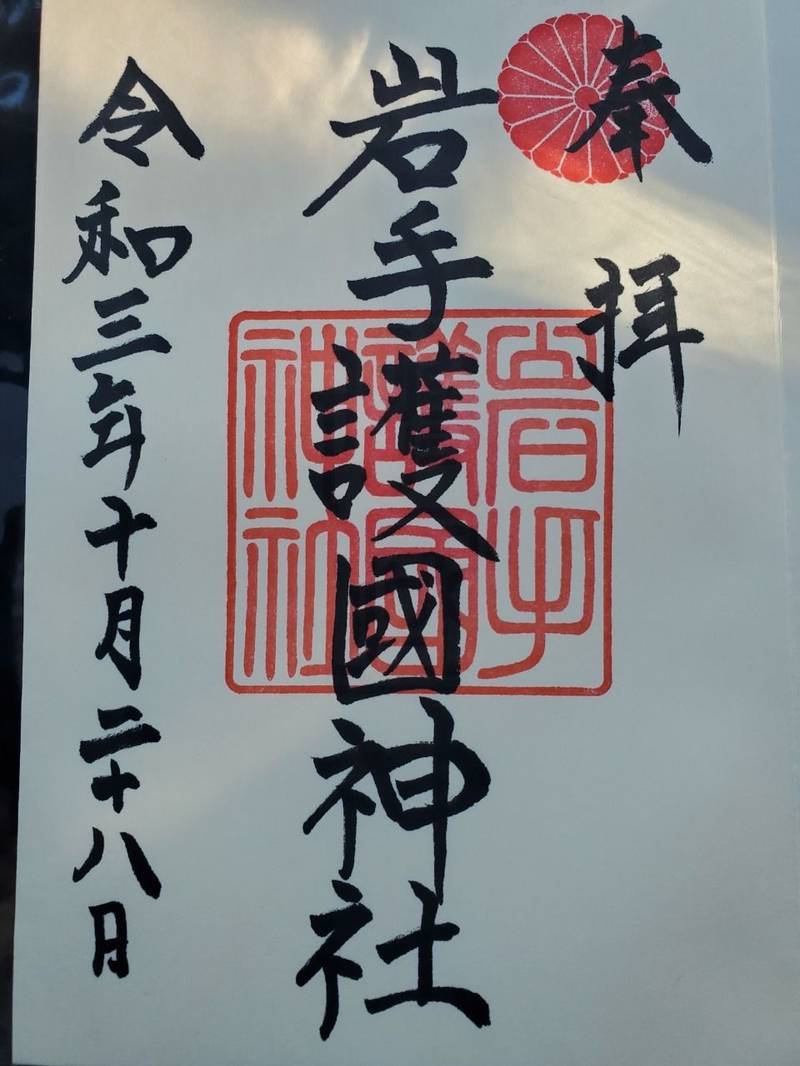 奉拝
岩手護國神社
岩手護國神社
令和三年十月二十八日